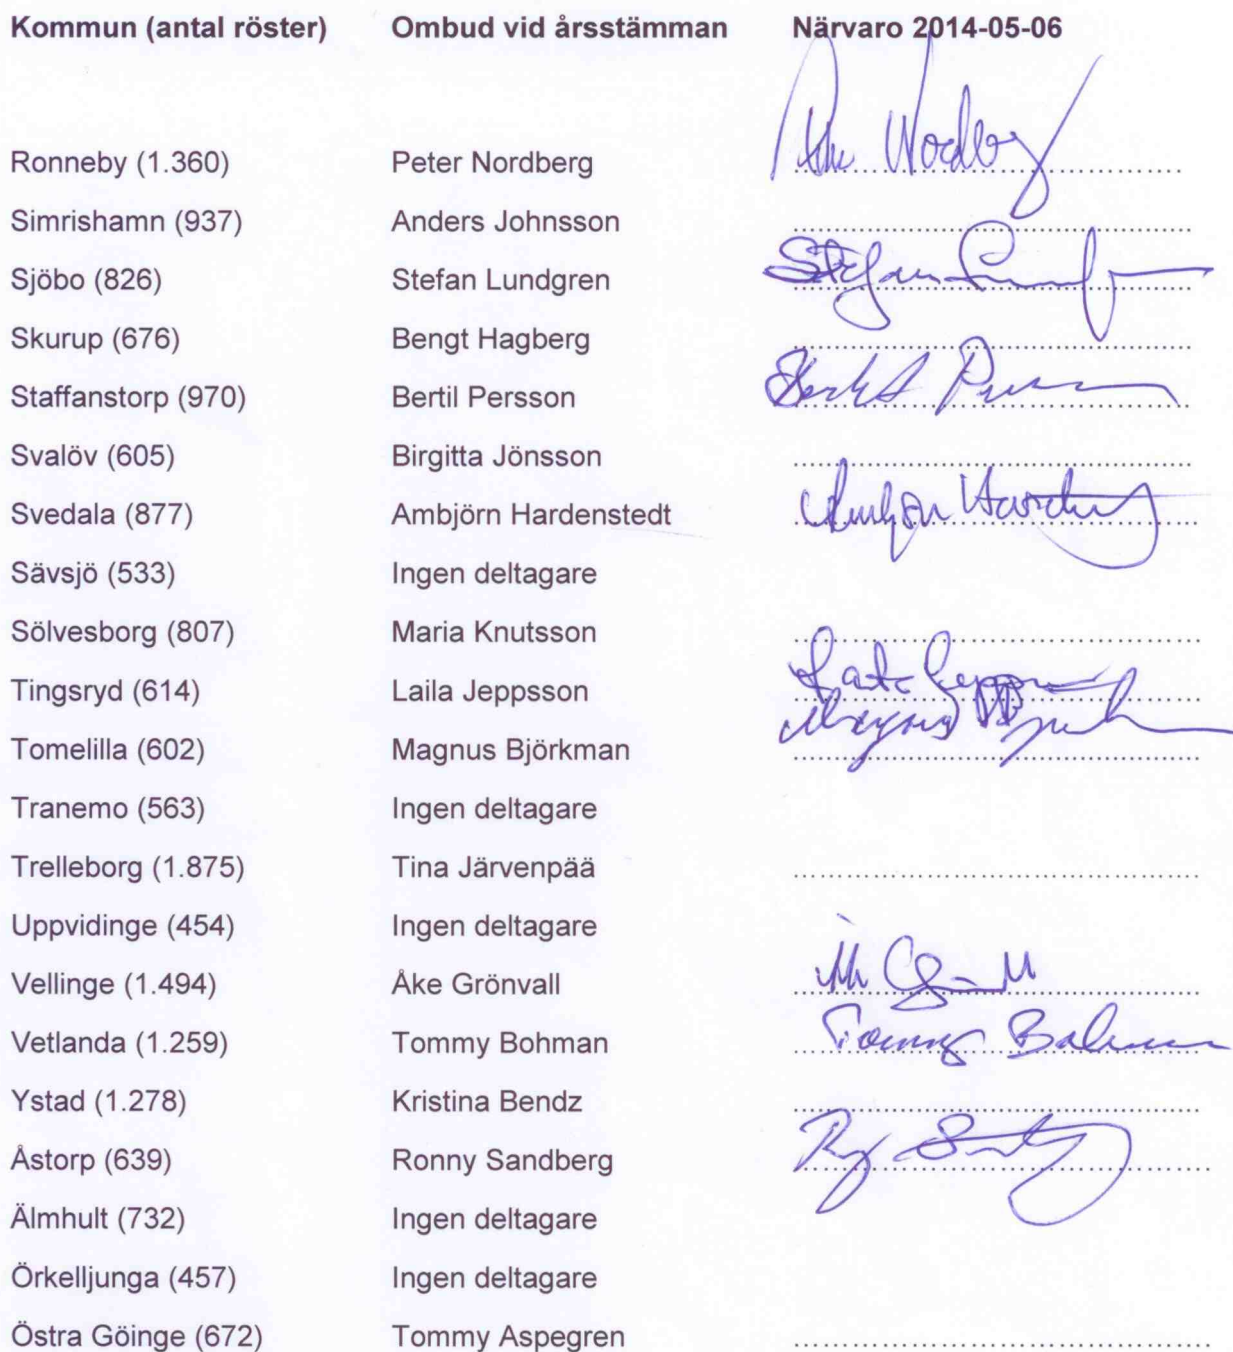 Kommun (antal röster) Ombud vid årsstämman Närvaro 2014-05-06
Ronneby (1.360) Peter Nordberg
Simrishamn (937) Anders Johnsson
Sjöbo (826) Stefan Lundgren Stefan
Skurup (676) Bengt Hagberg
Staffanstorp (970) Bertil Persson
Svalöv (605) Birgitta Jönsson
Svedala (877) Ambjörn Hardenstedt
Sävsjö (533) Ingen deltagare
Sölvesborg (807) Maria Knutsson
Tingsryd (614) Laila Jeppsson
Tomelilla (602) Magnus Björkman Magnus
Tranemo (563) Ingen deltagare
Trelleborg (1.875) Tina Järvenpää
Uppvidinge (454) Ingen deltagare
Vellinge (1.494) Åke Grönvall
Vetlanda (1.259) Tommy Bohman Tommy Bohman
Ystad (1.278) Kristina Bendz
Åstorp (639) Ronny Sandberg
Älmhult (732) Ingen deltagare
Örkelljunga (457) Ingen deltagare
Östra Göinge (672) Tommy Aspegren